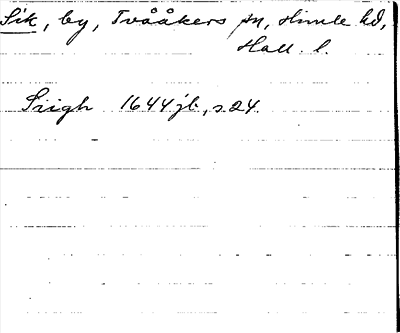 Sik, by, Tvååkers sn, Himle hd,
Hall. l.
Siigh 1644 jb., s. 24.